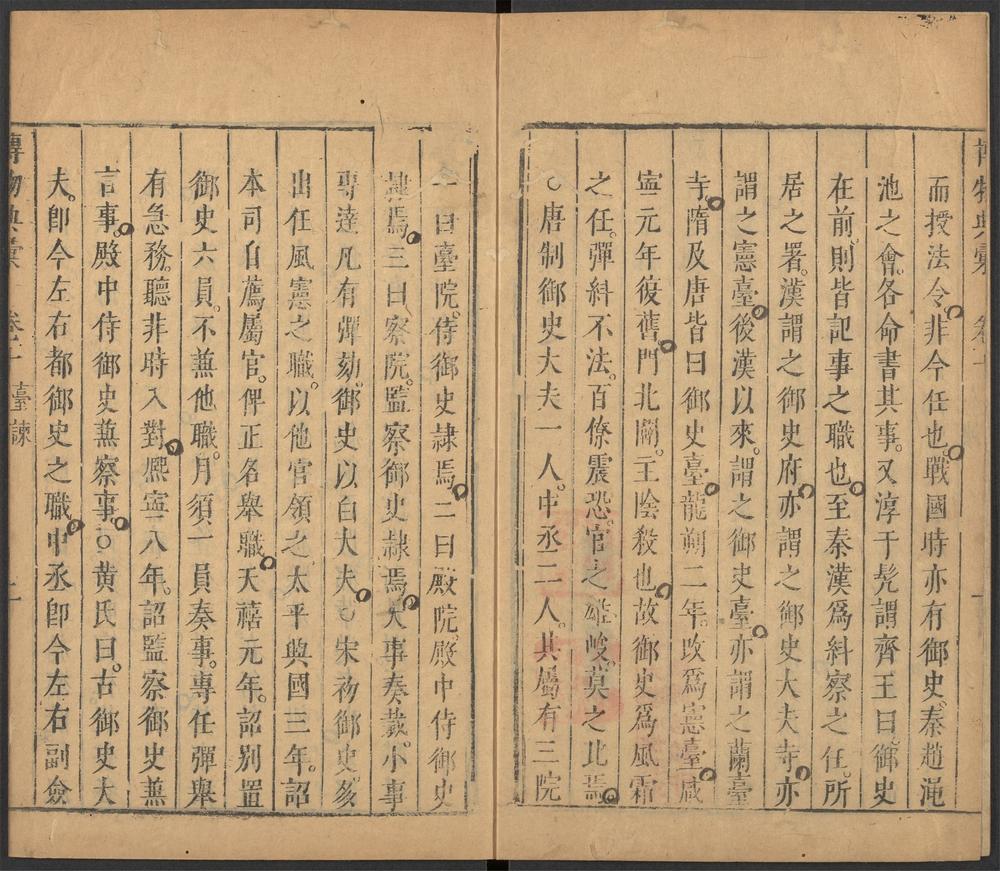 而授法令。非今任也。戰國時亦有御史。秦趙澠
池之會。各命書其事。又淳于髡謂齊王曰。御史
在前。則皆記事之職也。至秦漢爲糾察之任。所
居之署。漢謂之御史府。亦謂之御史大夫寺。亦
謂之憲臺。後漢以來。謂之御史臺。亦謂之蘭臺
寺。隋及唐皆曰御史臺。龍朔二年。改爲憲臺。咸
寧元年復舊。門北闢。主陰殺也。故御史爲風霜
之任。彈糾不法。百僚震恐。官之雄峻。莫之比焉。
○唐制御史大夫一人。中丞二人。其屬有三院
一曰臺院。侍御史隷焉。二曰殿院。殿中侍御史
隷焉。三曰察院。監察御史隷焉。大事奏裁。小事
專達。凡有彈劾。御史以白大夫。○宋初御史。多
出任風憲之職。以他官領之。太平興國三年。詔
本司自薦屬官。俾正名舉職。天禧元年。詔别置
御史六員。不兼他職。月須一員奏事。專任彈舉
有急務。聽非時入對。熈寧八年。詔監察御史兼
言事。殿中侍御史兼察事。○黄氏曰。古御史大
夫。卽今左右都御史之職。中丞卽今左右副僉
博物典彙 卷二 臺諫